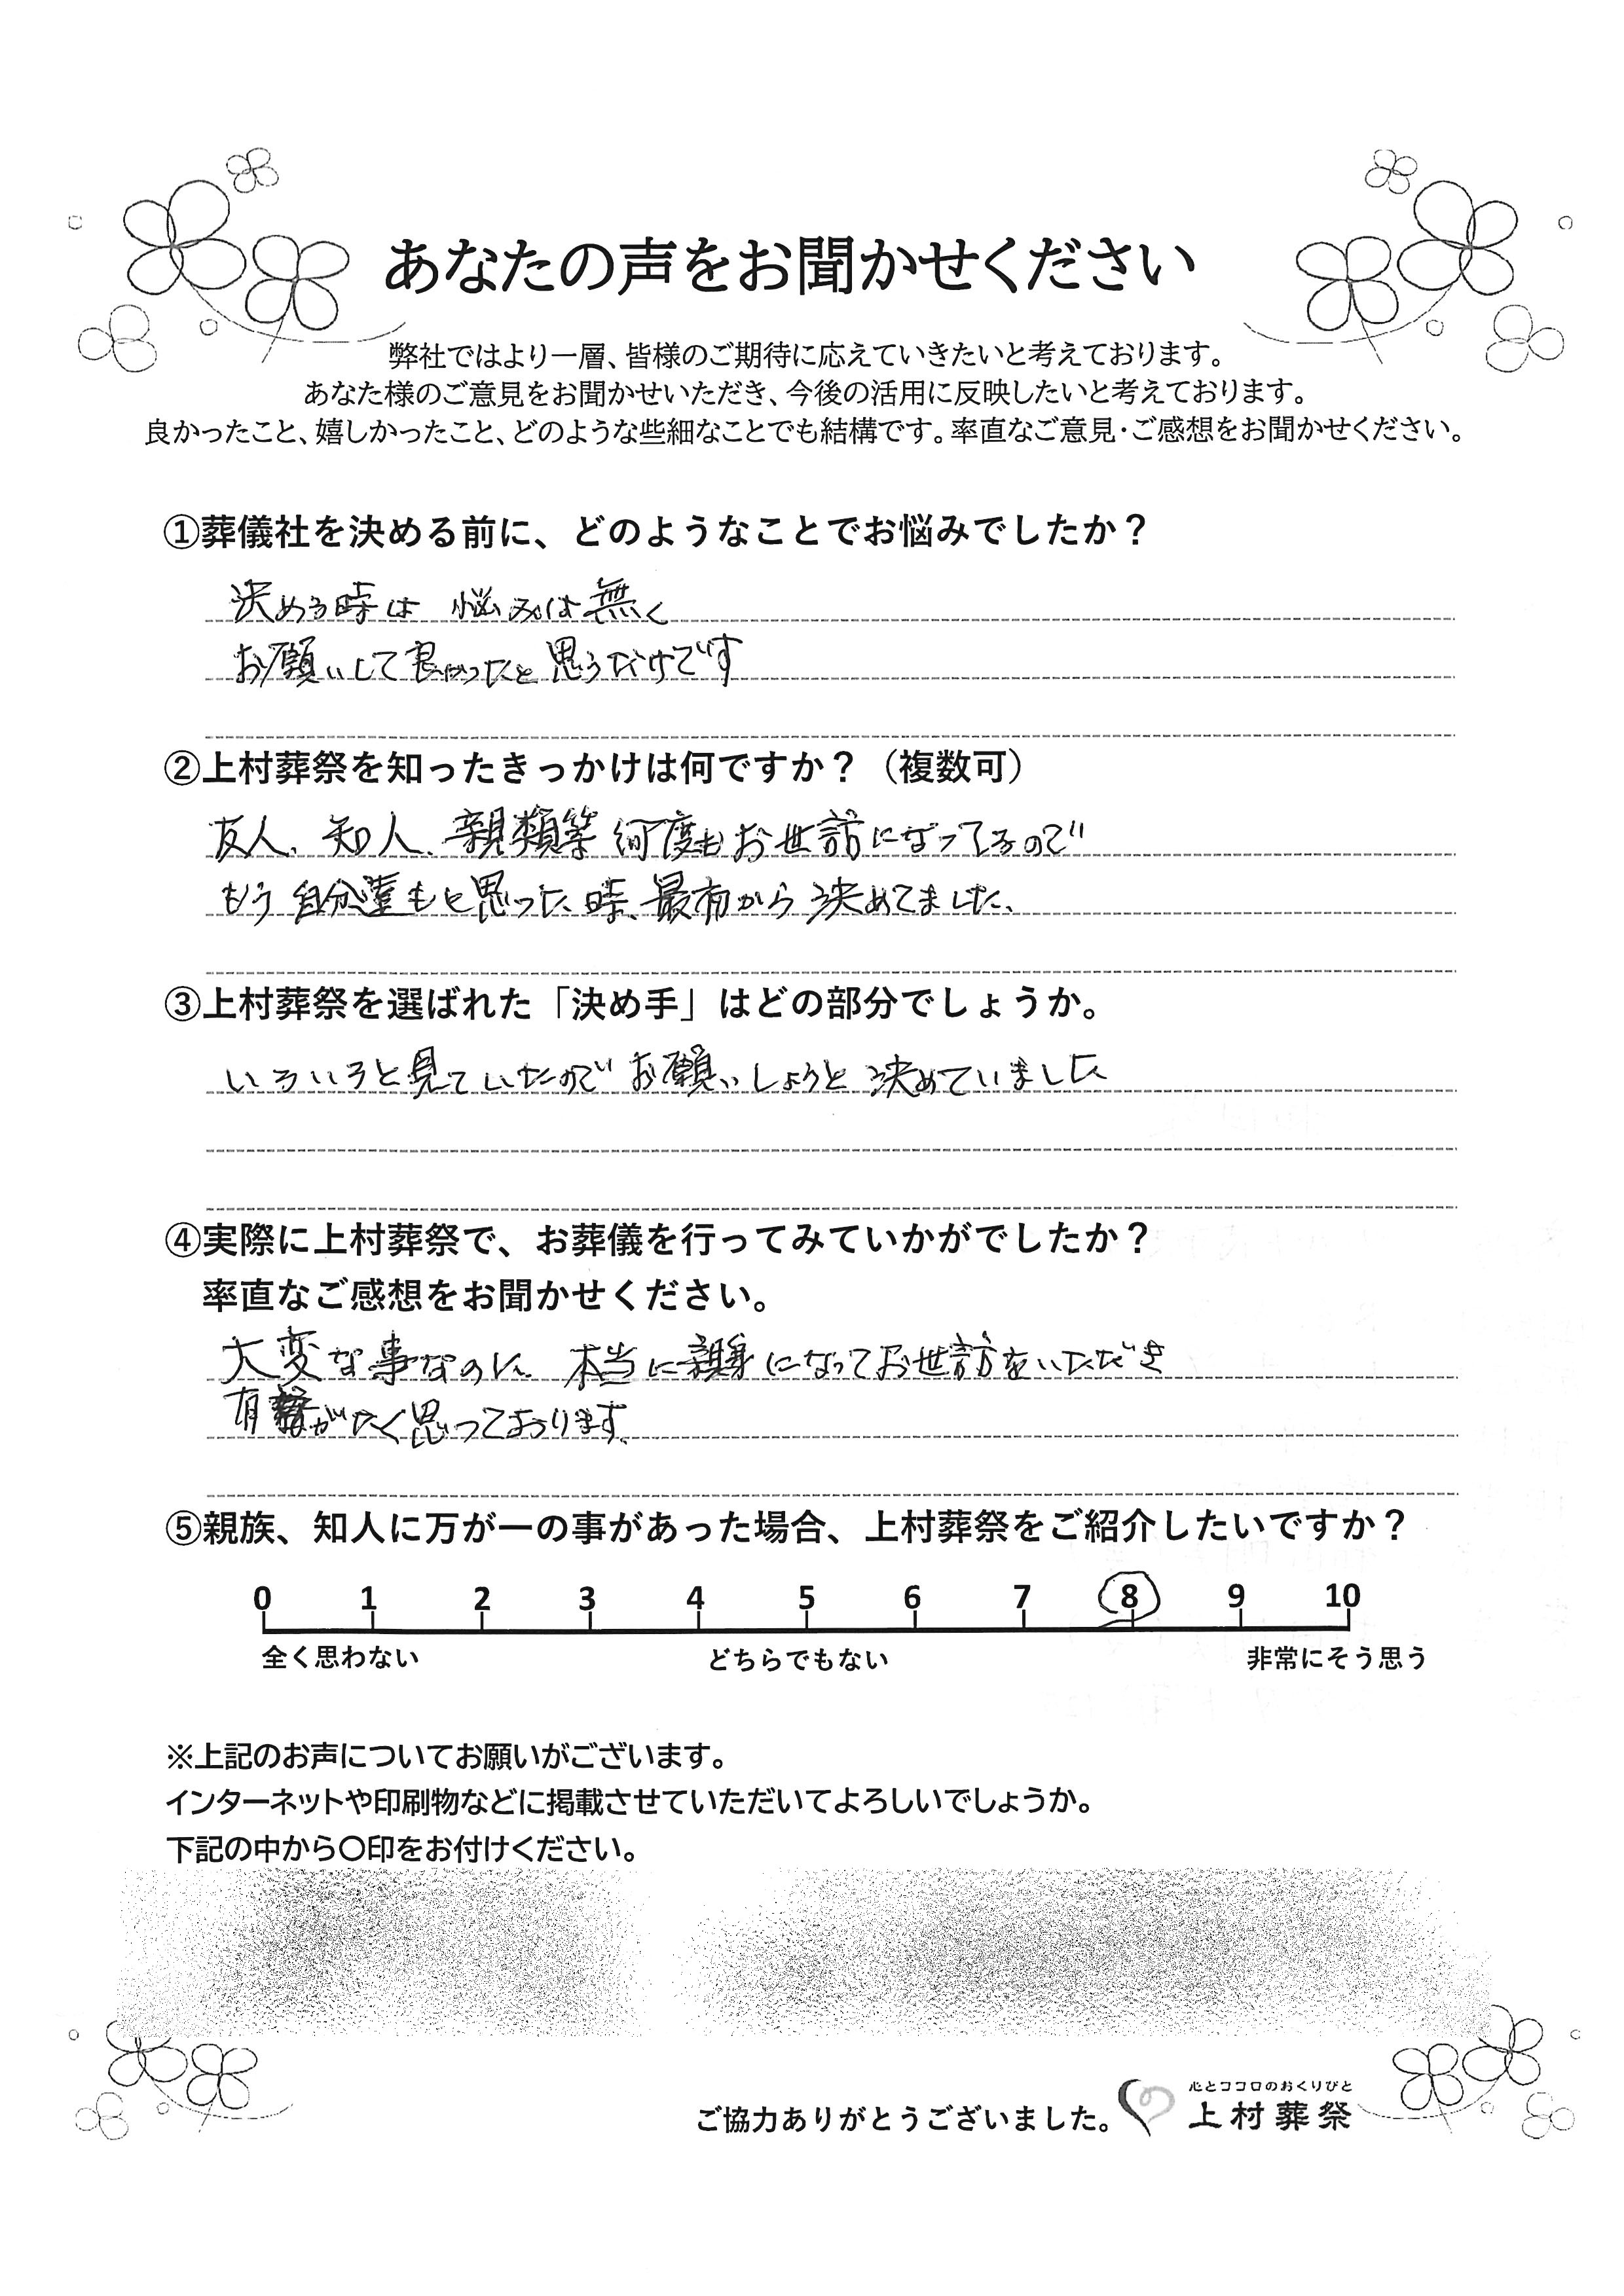 あなたの声をお聞かせください
弊社ではより一層、皆様のご期待に応えていきたいと考えております。
あなた様のご意見をお聞かせいただき、今後の活用に反映したいと考えております。
良かったこと、嬉しかったこと、どのような些細なことでも結構です。率直なご意見・ご感想をお聞かせください。
①葬儀社を決める前に、どのようなことでお悩みでしたか？
決める時は 悩みは無く
お願いして良かったと思うだけです
②上村葬祭を知ったきっかけは何ですか？（複数可）
友人、知人、親類等 何度もお世話になってるので
もう自分達もと思った時、最初から決めてました。
③上村葬祭を選ばれた「決め手」はどの部分でしょうか。
いろいろと見ていたので お願いしようと決めていました
④実際に上村葬祭で、お葬儀を行ってみていかがでしたか？
率直なご感想をお聞かせください。
大変な事なのに 本当に親身になってお世話をいただき
有難がたく思っております。
⑤親族、知人に万が一の事があった場合、上村葬祭をご紹介したいですか？
0 1 2 3 4 5 6 7 8 9 10
全く思わない どちらでもない 非常にそう思う
※上記のお声についてお願いがございます。
インターネットや印刷物などに掲載させていただいてよろしいでしょうか。
下記の中から〇印をお付けください。
心とココロのおくりびと
ご協力ありがとうございました。 上村葬祭